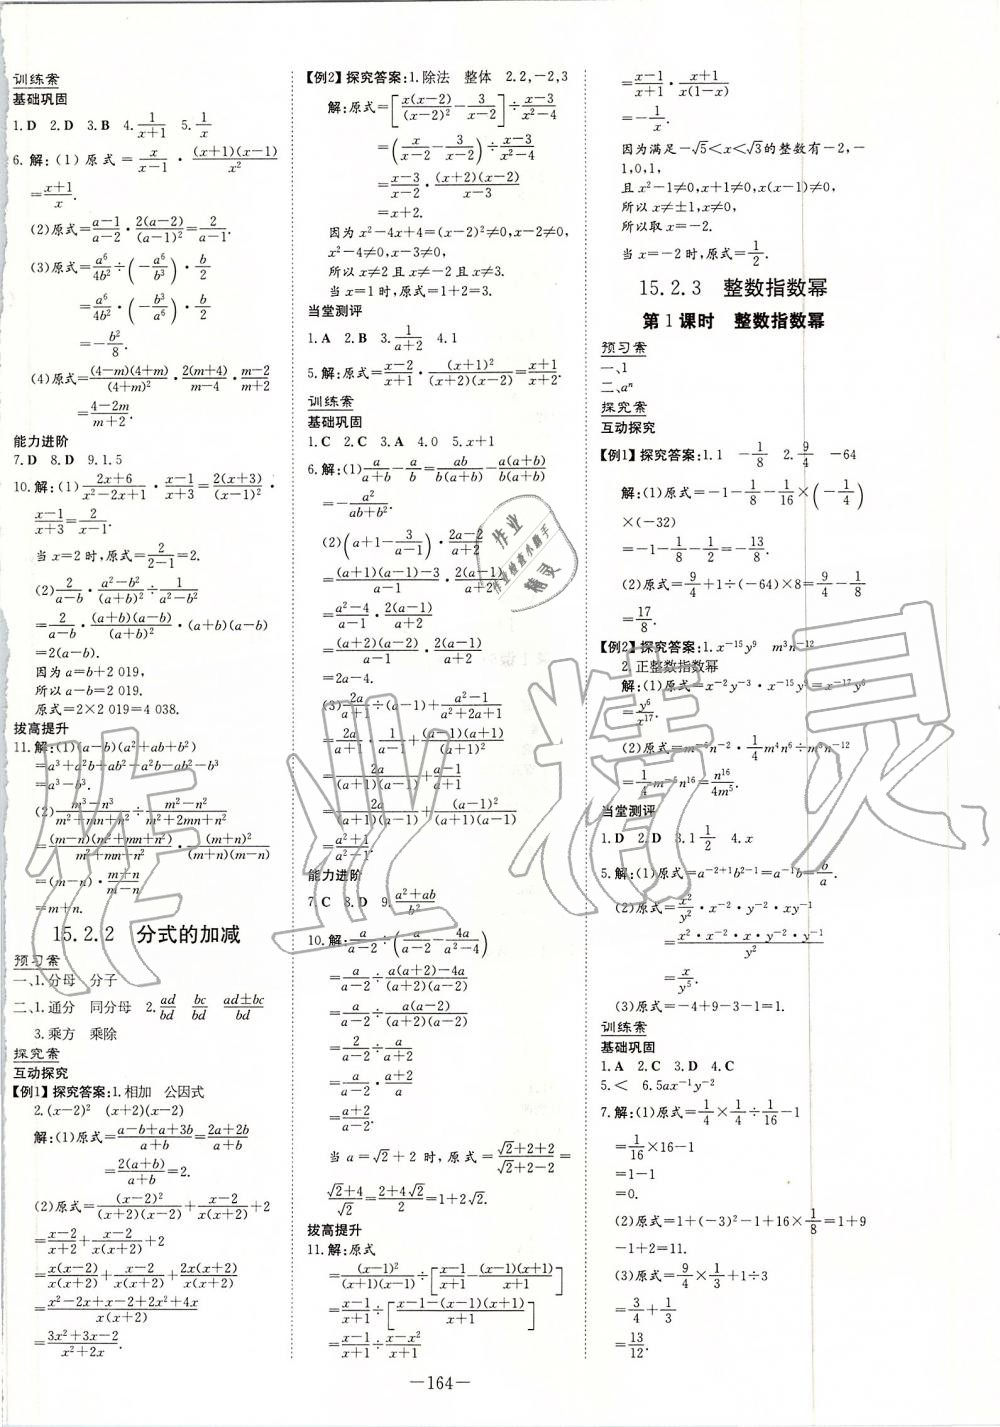 训练案
基础巩固
1.D 2.D 3.B 4.1/(x+1) 5.1/x
6.解:(1)原式=x/(x-1)·(x+1)(x-1)/x²
=(x+1)/x.
(2)原式=(a-1)/(a-2)·2(a-2)/(a-1)²=2/(a-1).
(3)原式=a⁶/4b²÷(-a⁶/b³)·b/2
=a⁶/4b²·(-b³/a⁶)·b/2
=-b²/8.
(4)原式=(4-m)(4+m)/(4+m)²·2(m+4)/(m-4)·(m-2)/(m+2)
=(4-2m)/(m+2).
能力进阶
7.D 8.D 9.1.5
10.解:(1)(2x+6)/(x²-2x+1)·(x-1)/(x+3)=2(x+3)/(x-1)²·
(x-1)/(x+3)=2/(x-1).
当x=2时,原式=2/(2-1)=2.
(2)2/(a-b)·(a²-b²)/(a+b)²÷1/(a²-b²)
=2/(a-b)·(a+b)(a-b)/(a+b)²·(a+b)(a-b)
=2(a-b).
因为a=b+2 019,
所以a-b=2 019.
原式=2×2 019=4 038.
拔高提升
11.解:(1)(a-b)(a²+ab+b²)
=a³+a²b+ab²-a²b-ab²-b³
=a³-b³.
(2)(m³-n³)/(m²+mn+n²)÷(m²-n²)/(m²+2mn+n²)
=(m-n)(m²+mn+n²)/(m²+mn+n²)·(m+n)²/(m+n)(m-n)
=(m-n)·(m+n)/(m-n)
=m+n.
15.2.2 分式的加减
预习案
一、1.分母 分子
二、1.通分 同分母 2.ad/bd bc/bd (ad±bc)/bd
3.乘方 乘除
探究案
互动探究
【例1】探究答案:1.相加 公因式
2.(x-2)² (x+2)(x-2)
解:(1)原式=(a-b+a+3b)/(a+b)=(2a+2b)/(a+b)
=2(a+b)/(a+b)=2.
(2)原式=(x-2)²/(x+2)(x-2)+(x-2)/x(x+2)+2
=(x-2)/(x+2)+(x-2)/x(x+2)+2
=x(x-2)/x(x+2)+(x-2)/x(x+2)+2x(x+2)/x(x+2)
=(x²-2x+x-2+2x²+4x)/x(x+2)
=(3x²+3x-2)/(x²+2x).
【例2】探究答案:1.除法 整体 2.2,-2,3
解:原式=[x(x-2)/(x-2)²-3/(x-2)]÷(x-3)/(x²-4)
=(x/(x-2)-3/(x-2))÷(x-3)/(x²-4)
=(x-3)/(x-2)·(x+2)(x-2)/(x-3)
=x+2.
因为x²-4x+4=(x-2)²≠0,x-2≠0,
x²-4≠0,x-3≠0,
所以x≠2且x≠-2且x≠3.
当x=1时,原式=1+2=3.
当堂测评
1.A 2.B 3.1/(a+2) 4.1
5.解:原式=(x-2)/(x+1)·(x+1)²/(x+2)(x-2)=(x+1)/(x+2).
训练案
基础巩固
1.C 2.C 3.A 4.0 5.x+1
6.解:(1)a/(a+b)-a/b=ab/b(a+b)-a(a+b)/b(a+b)
=-a²/(ab+b²).
(2)(a+1-3/(a-1))·(2a-2)/(a+2)
=((a+1)(a-1)-3)/(a-1)·2(a-1)/(a+2)
=(a²-4)/(a-1)·2(a-1)/(a+2)
=(a+2)(a-2)/(a-1)·2(a-1)/(a+2)
=2a-4.
(3)原式=2a/(a+1)÷(a-1)+(a²-1)/(a²+2a+1)
=2a/(a+1)·1/(a-1)+(a+1)(a-1)/(a+1)²
=2a/(a+1)(a-1)+(a-1)²/(a+1)(a-1)
=(a²+1)/(a²-1).
能力进阶
7.C 8.D 9.(a²+ab)/b²
10.解:a/(a-2)÷(a/(a-2)-4a/(a²-4))
=a/(a-2)÷(a(a+2)-4a)/(a+2)(a-2)
=a/(a-2)÷a(a-2)/(a+2)(a-2)
=a/(a-2)÷a/(a+2)
=a/(a-2)·(a+2)/a
=(a+2)/(a-2).
当a=√2+2时,原式=(√2+2+2)/(√2+2-2)=
(√2+4)/√2=(2+4√2)/2=1+2√2.
拔高提升
11.解:原式
=(x-1)²/(x+1)(x-1)÷[(x-1)/(x+1)-(x-1)(x+1)/(x+1)]
=(x-1)/(x+1)÷[(x-1-(x-1)(x+1))/(x+1)]
=(x-1)/(x+1)÷(x-x²)/(x+1)
=(x-1)/(x+1)·(x+1)/x(1-x)
=-1/x.
因为满足-√5<x<√3的整数有-2,-
1,0,1,
且x²-1≠0,x+1≠0,x(x-1)≠0,
所以x≠±1,x≠0,
所以取x=-2.
当x=-2时,原式=1/2.
15.2.3 整数指数幂
第1课时 整数指数幂
预习案
一、1
二、aⁿ
探究案
互动探究
【例1】探究答案:1.1 -1/8 2.9/4 -64
解:(1)原式=-1-1/8-1/16×(-1/4)
×(-32)
=-1-1/8-1/2=-13/8.
(2)原式=9/4+1÷(-64)×8=9/4-1/8
=17/8.
【例2】探究答案:1.x⁻¹⁵y⁹ m³n⁻¹²
2.正整数指数幂
解:(1)原式=x⁻²y⁻³·x⁻¹⁵y⁹=x⁻¹⁷y⁶
=y⁶/x¹⁷.
(2)原式=m⁻⁶n⁻²·1/4m⁴n⁶÷m³n⁻¹²
=1/4m⁻⁵n¹⁶=n¹⁶/4m⁵.
当堂测评
1.D 2.D 3.1 1/2 4.x
5.解:(1)原式=a⁻²⁺¹b²⁻¹=a⁻¹b=b/a.
(2)原式=x²/y²·x⁻²·y⁻²·xy⁻¹
=x²·x⁻²·x·y⁻²·y⁻¹/y²
=x/y⁵.
(3)原式=-4+9-3-1=1.
训练案
基础巩固
1.A 2.C 3.D 4.C
5.< 6.5ax⁻¹y⁻²
7.解:(1)原式=1/4×1/4÷1/16-1
=1/16×16-1
=1-1
=0.
(2)原式=1+(-3)²-1+16×1/8=1+9
-1+2=11.
(3)原式=9/4×1/3+1÷3
=3/4+1/3
=13/12.
-164-
作业
作业检查小助手
精灵
作业精灵